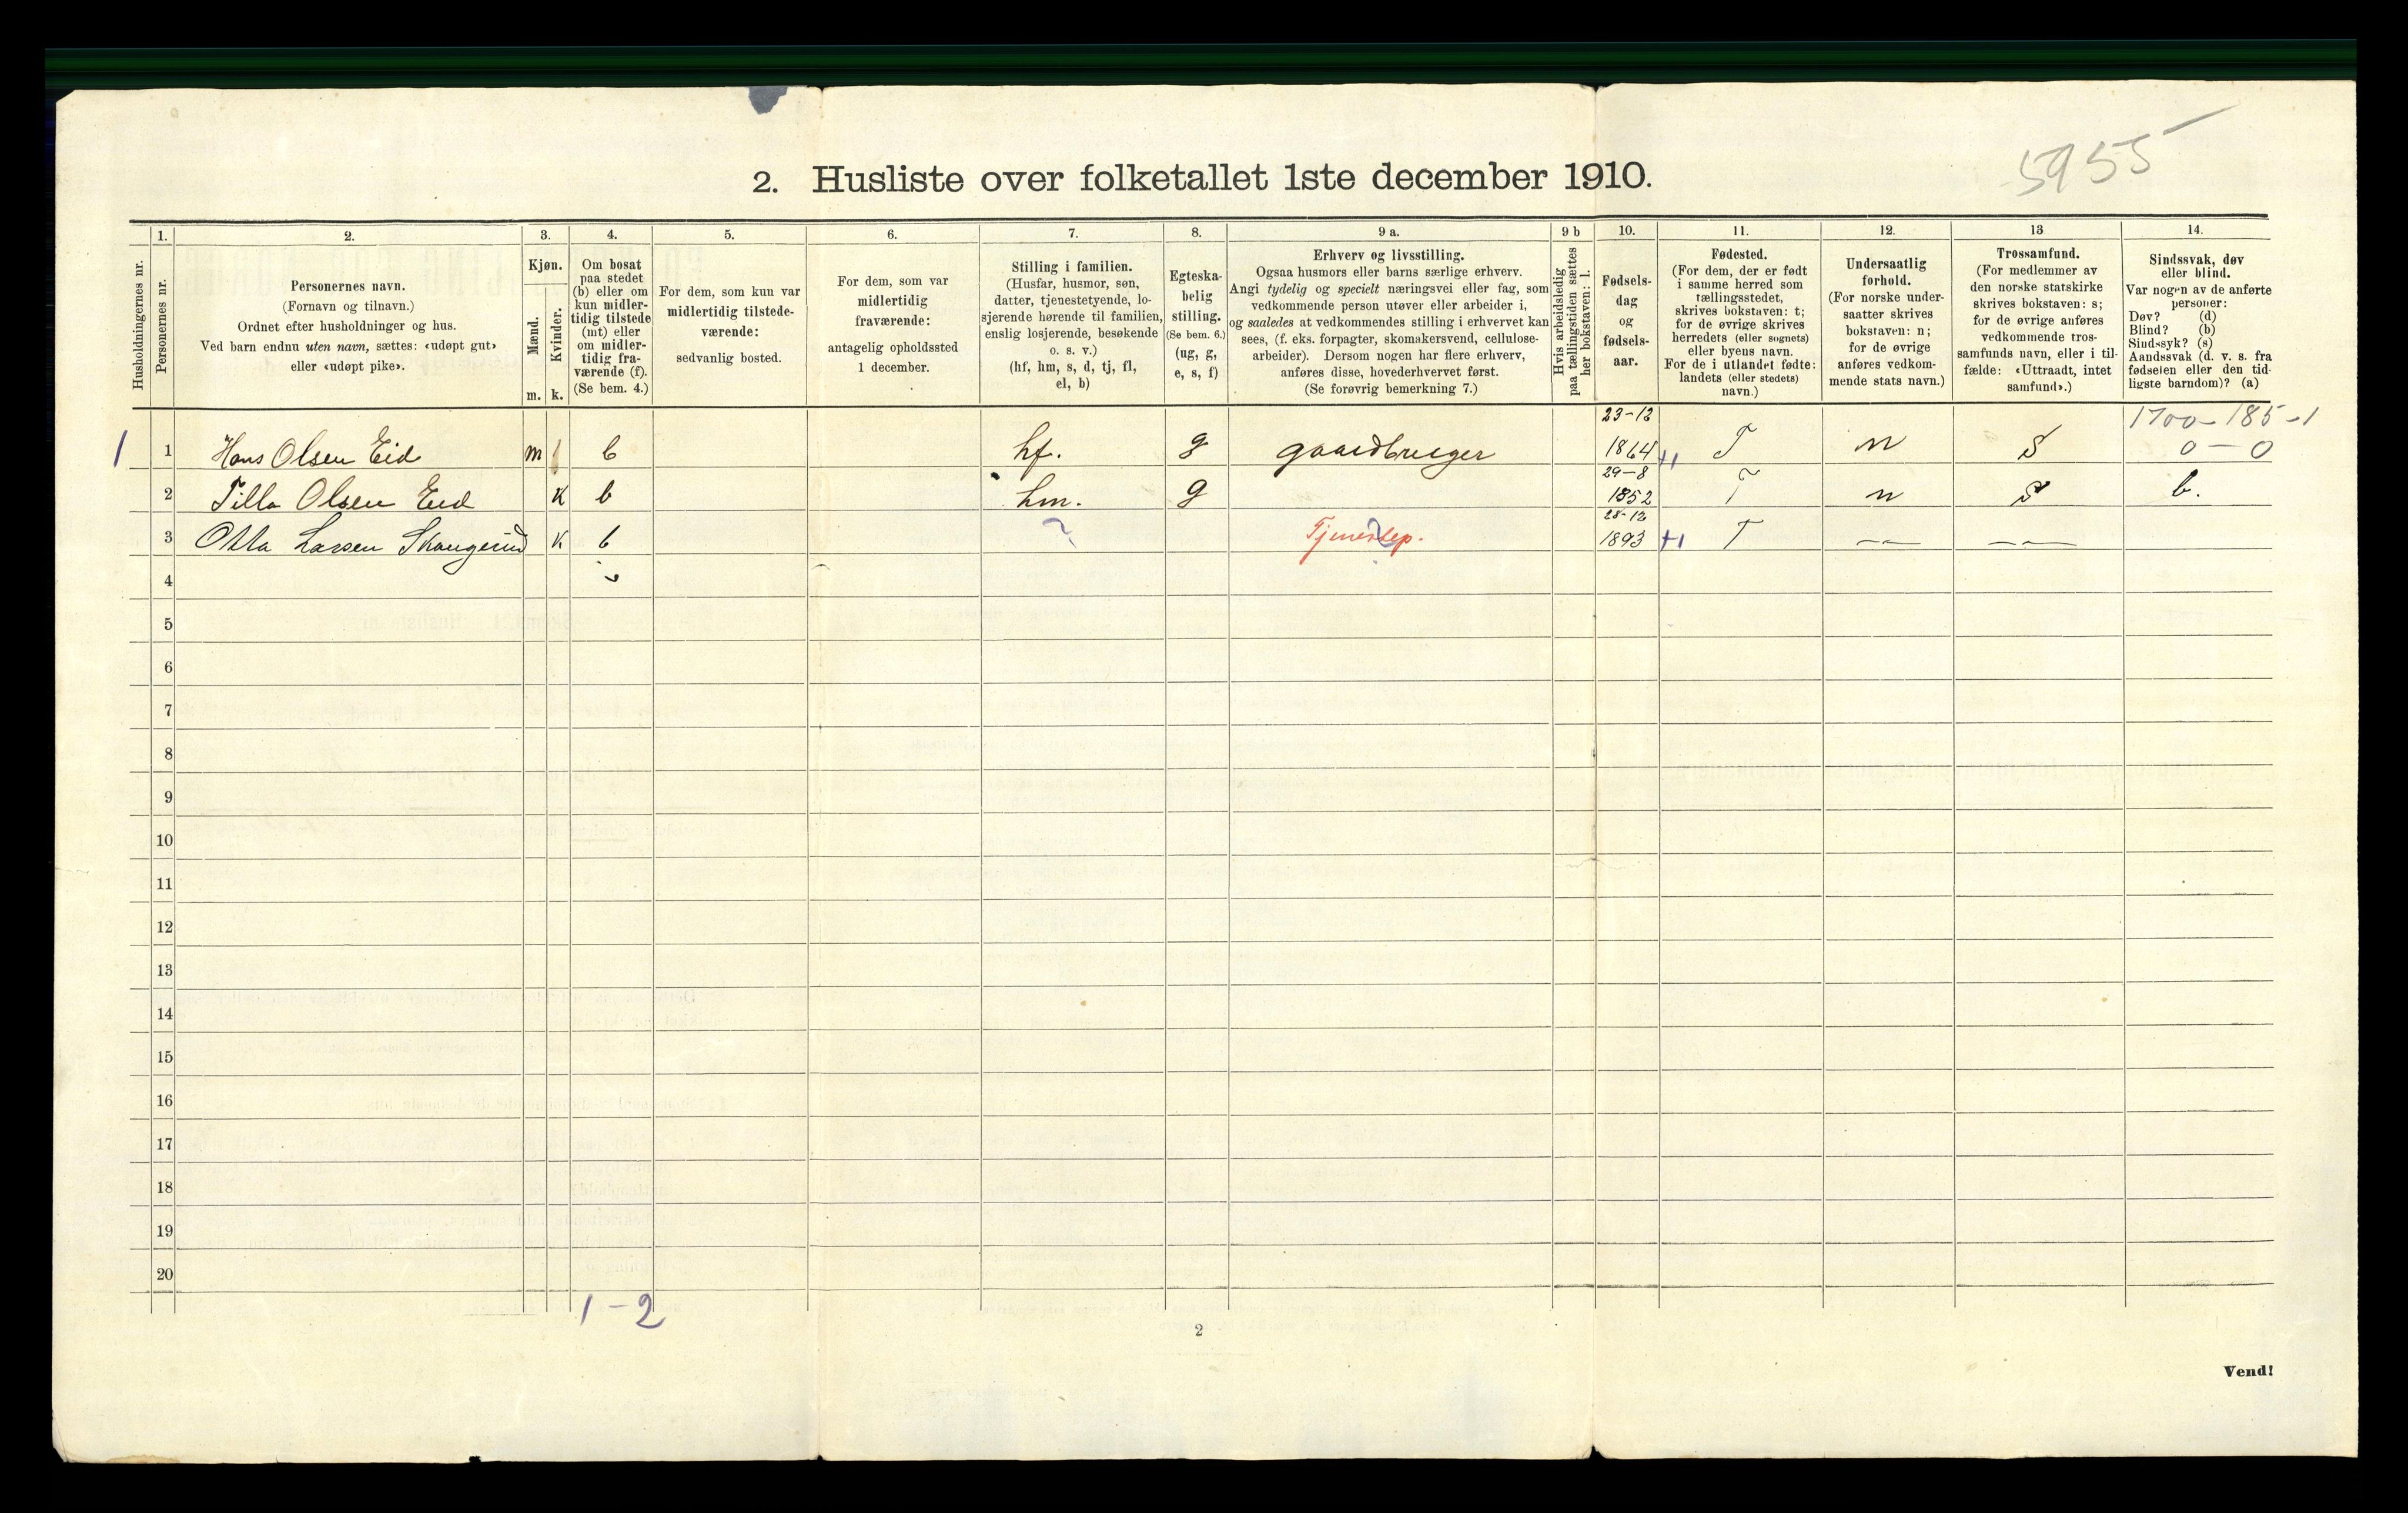 5955
2. Husliste over folketallet 1ste december 1910.
Husholdningernes nr.
1.
Personernes nr.
2.
Personernes navn.
(Fornavn og tilnavn.)
Ordnet efter husholdninger og hus.
Ved barn endnu uten navn, sættes: «udøpt gut»
eller «udøpt pike».
3.
Kjøn.
Mænd.
Kvinder.
m. k.
4.
Om bosat
paa stedet
(b) eller om
kun midler-
tidig tilstede
(mt) eller
om midler-
tidig fra-
værende (f).
(Se bem. 4.)
5.
For dem, som kun var
midlertidig tilstede-
værende:
sedvanlig bosted.
6.
For dem, som var
midlertidig
fraværende:
antagelig opholdssted
1 december.
7.
Stilling i familien.
(Husfar, husmor, søn,
datter, tjenestetyende, lo-
sjerende hørende til familien,
enslig losjerende, besøkende
o. s. v.)
(hf, hm, s, d, tj, fl,
el, b)
8.
Egteska-
belig
stilling.
(Se bem. 6.)
(ug, g,
e, s, f)
9 a.
Erhverv og livsstilling.
Ogsaa husmors eller barns særlige erhverv.
Angi tydelig og specielt næringsvei eller fag, som
vedkommende person utøver eller arbeider i,
og saaledes at vedkommendes stilling i erhvervet kan
sees, (f. eks. forpagter, skomakersvend, cellulose-
arbeider). Dersom nogen har flere erhverv,
anføres disse, hovederhvervet først.
(Se forøvrig bemerkning 7.)
9 b
Hvis arbeidsledig
paa tællingstiden sættes
her bokstaven: l.
10.
Fødsels-
dag
og
fødsels-
aar.
11.
Fødested.
(For dem, der er født
i samme herred som
tællingsstedet,
skrives bokstaven: t;
for de øvrige skrives
herredets (eller sognets)
eller byens navn.
For de i utlandet fødte:
landets (eller stedets)
navn.)
12.
Undersaatlig
forhold.
(For norske under-
saatter skrives
bokstaven: n;
for de øvrige
anføres vedkom-
mende stats navn.)
13
Trossamfund.
(For medlemmer av
den norske statskirke
skrives bokstaven: s;
for de øvrige anføres
vedkommende tros-
samfunds navn, eller i til-
fælde: «Uttraadt, intet
samfund».)
14.
Sindssvak, døv
eller blind.
Var nogen av de anførte
personer:
Døv? (d)
Blind? (b)
Sindssyk? (s)
Aandssvak (d. v. s. fra
fødselen eller den tid-
ligste barndom)? (a)
1700-185-1
0-0
1 1 Hans Olsen Eid m b hf. g gaardbruger 23-12 1864 +1 T n S
2 Tilla Olsen Eid K b hm. g 29-8 1852 T n S b.
3 Otta Larsen Skaugerud K b Tjenestep. 28-12 1893 +1 T
4
5
6
7
8
9
10
11
12
13
14
15
16
17
18
19
20
1-2
2
Vend!